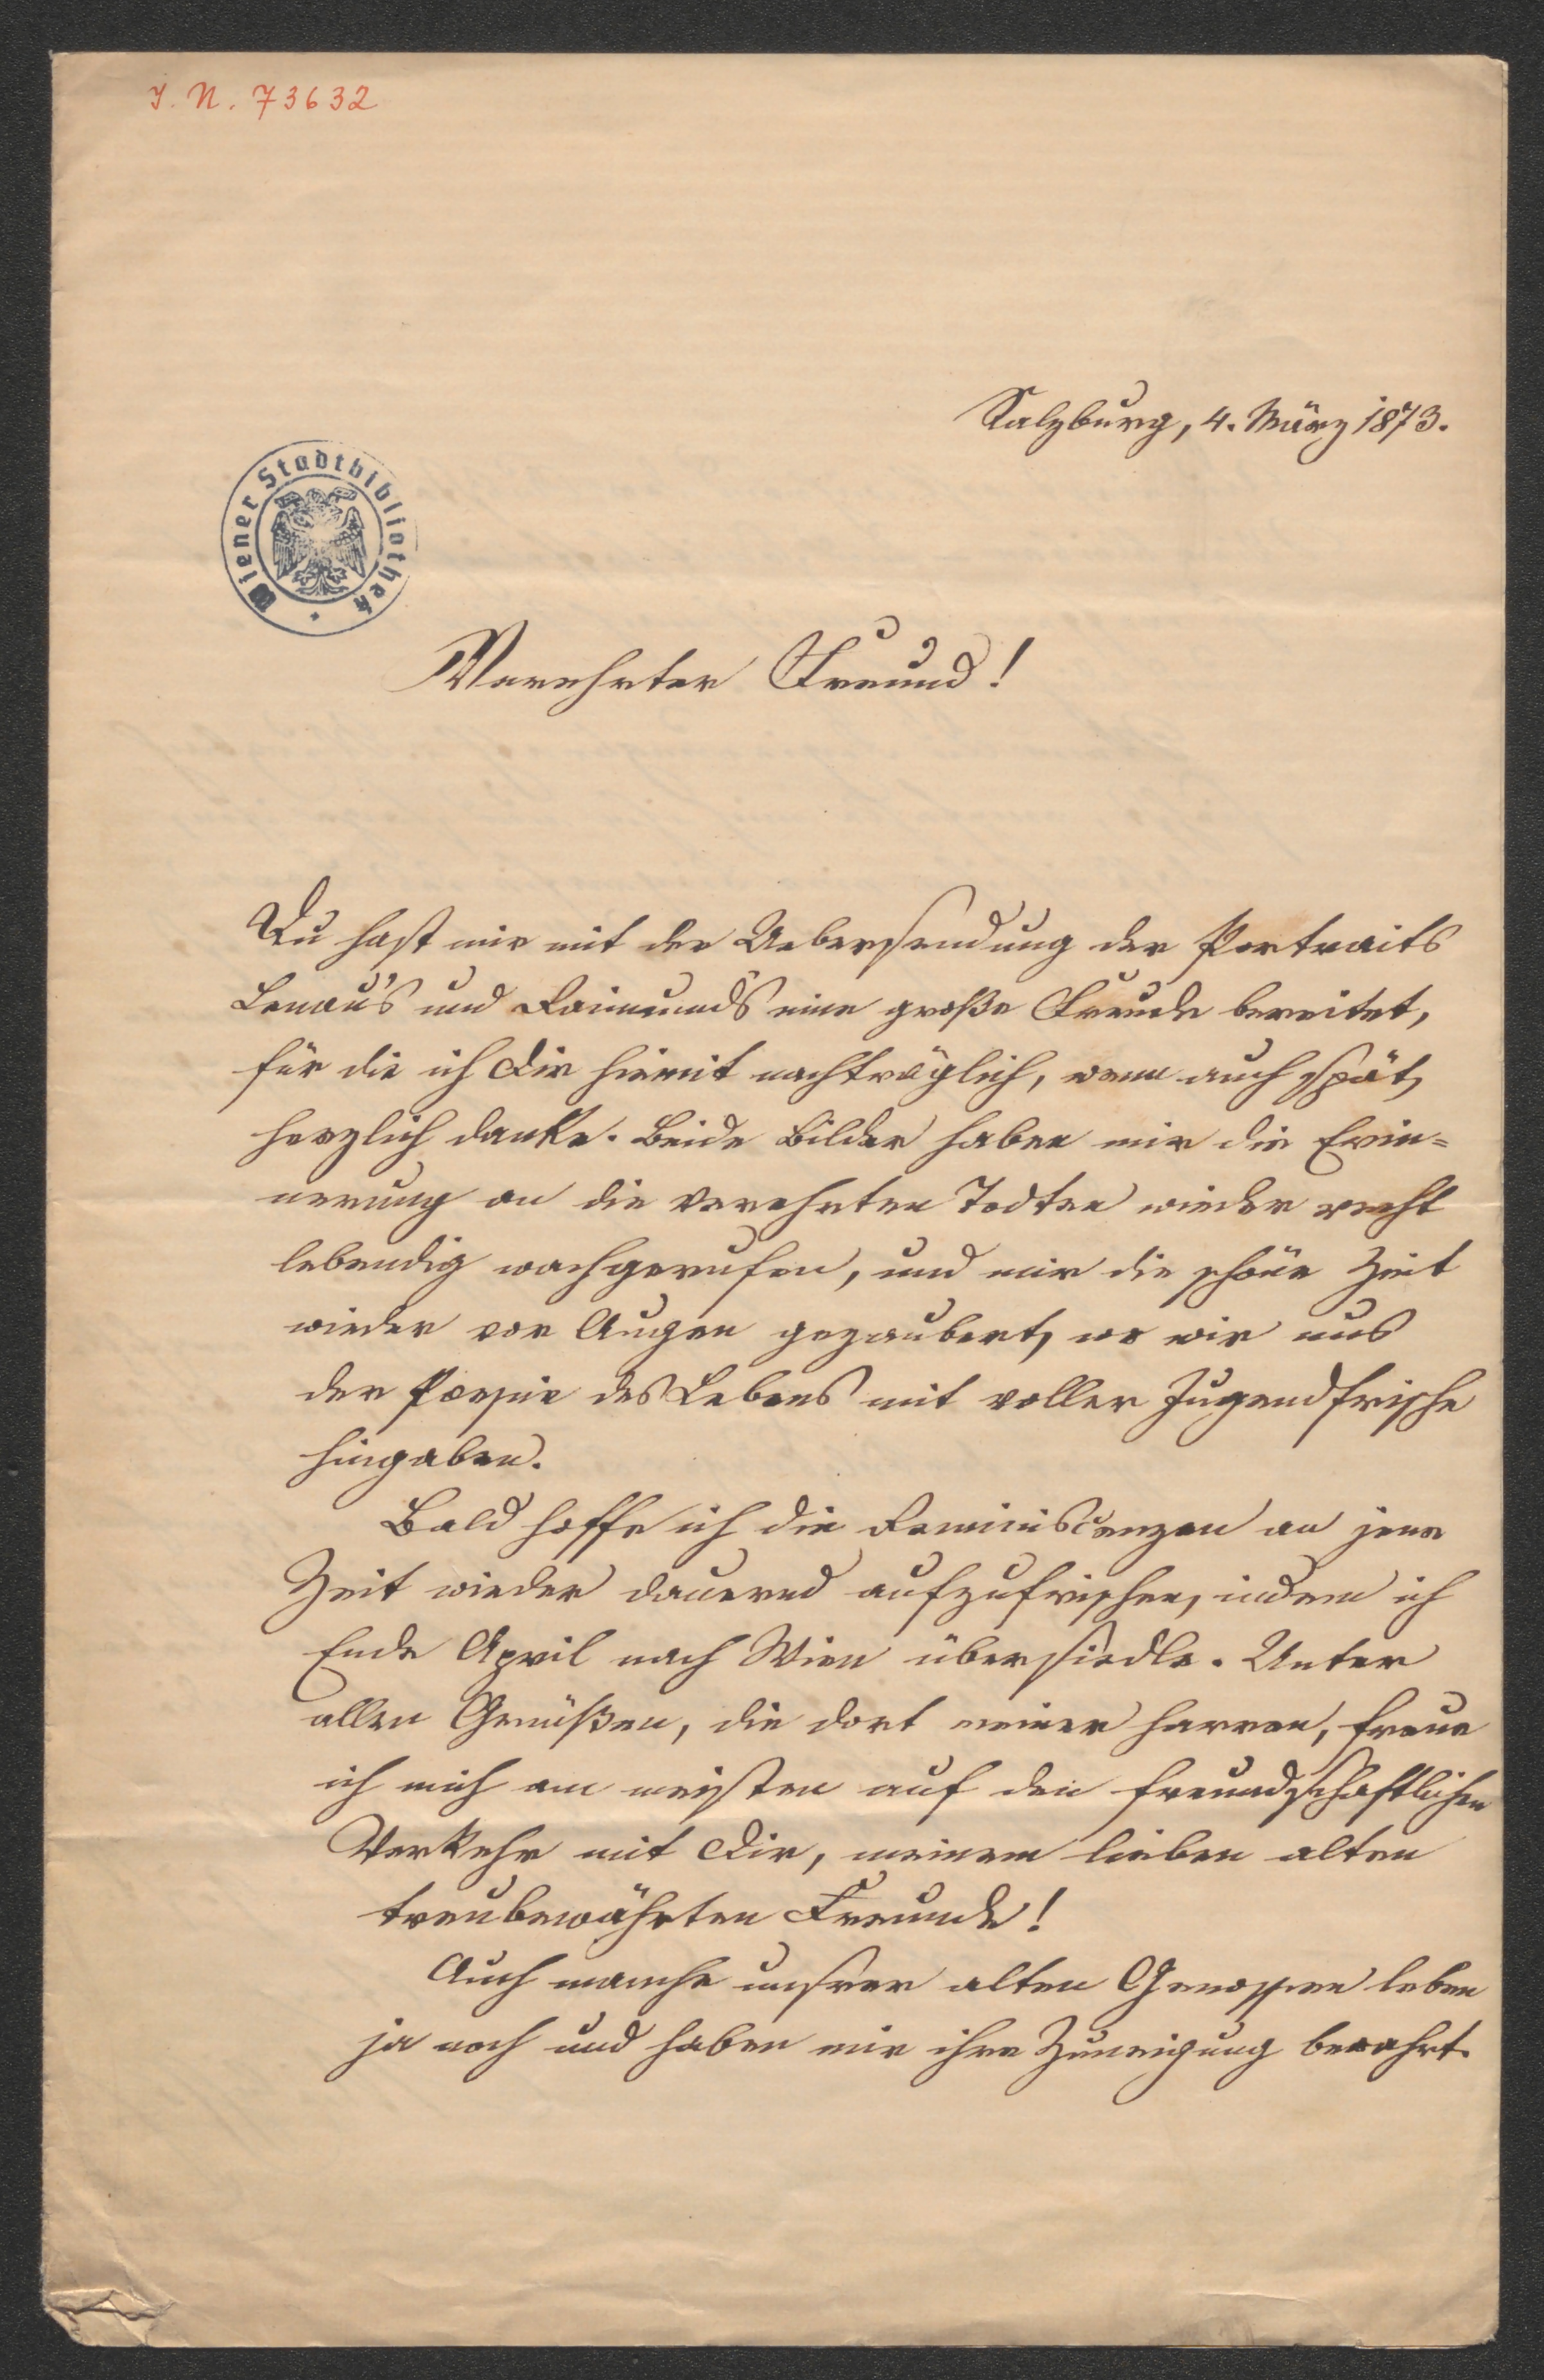 I. N. 73632
Salzburg, 4. März 1873.
Wiener Stadtbibliothek
Verehrter Freund!
Du hast mir mit der Uebersendung der Portraits
Lenau's und Raimund's eine große Freude bereitet,
für die ich Dir hiemit nachträglich, wenn auch spät,
herzlich danke. Beide Bilder haben mir die Erin-
nerung an die verehrten Todten wieder recht
lebendig wachgerufen, und mir die schöne Zeit
wieder vor Augen gezaubert, wo wir uns
der Poesie des Lebens mit voller Jugendfrische
hingaben.
Bald hoffe ich die Reminiscenzen an jene
Zeit wieder dauernd aufzufrischen, indem ich
Ende April nach Wien übersiedle. Unter
allen Genüßen, die dort meiner harren, freue
ich mich am meisten auf den freundschaftlichen
Verkehr mit Dir, meinem lieben alten
treubewährten Freunde!
Auch manche unsrer alten Genossen leben
ja noch und haben mir ihre Zuneigung bewahrt.